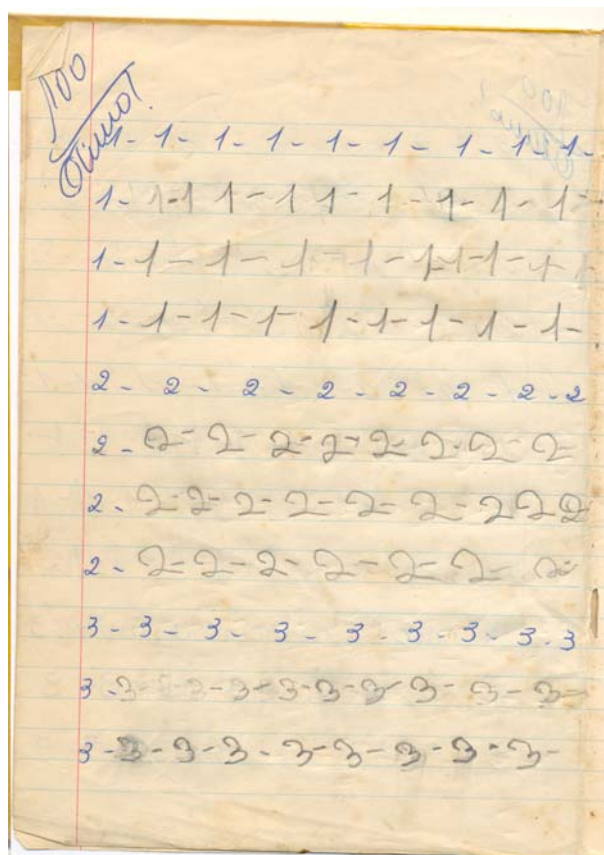 100
Ótimo!
1- 1- 1- 1- 1- 1- 1- 1- 1-
1- 1-1 1-1 1- 1- 1- 1- 1-
1- 1- 1- 1- 1- 1-1-1-1-1
1- 1-1-1- 1-1-1-1-1-
2- 2- 2- 2- 2- 2- 2-2
2- 2- 2- 2-2-2-2-2-2-
2- 2-2-2-2-2-2-2 2 2
2- 2-2-2-2-2-2- 2-
3-3-3-3-3-3-3-3-3
3-3-3-3-3-3-3-3-3-3-3-
3-3-3-3-3-3-3-3-3-